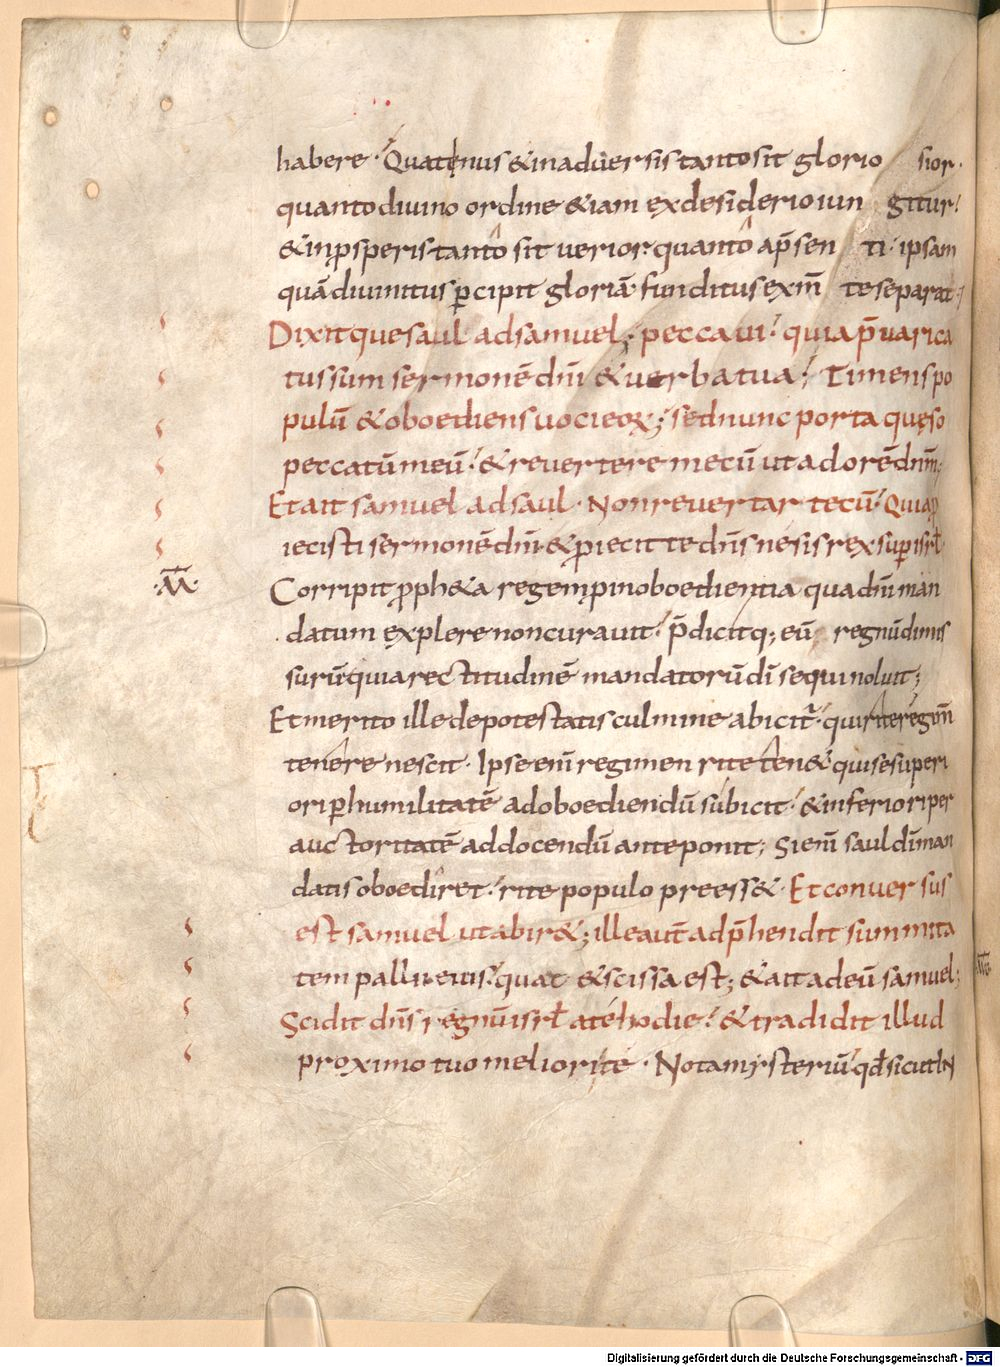 habere· Quatenus & in aduersis tanto sit glorio sior·
quanto diuino ordine & iam ex desiderio iun gitur!
& in ꝓsperis tanto sit uerior· quanto a p̄sen ti· ipsam
quā diuinitus ꝑcipit gloriā· funditus ex m̄ te separat·
Dixitque saul ad samuel; peccaui! quia p̄uarica
tus sum sermonē dn̄i & uerba tua; Timens po
pulū & oboediens uoci eoꝝ; sed nunc porta quęso
peccatū meū! & reuertere mecū ut adorē dn̄m;
Et ait samuel ad saul· Non reuertar tecū! Quia ꝓ
iecisti sermonē dn̄i· & ꝓiecit te dn̄s ne sis rex suꝑ isrł·
·M̄·
Corripit ꝓph&a regem ꝓ inoboedientia qua dn̄i man
datum explere non curauit! p̄dicitq; eū regnū dimis
surū· quia rectitudinē mandatorū dī sequi noluit;
Et merito ille de potestatis culmine abicit᷑· qui rite regim̄
tenere nescit· Ipse enī regimen rite ten& qui se superi
ori ꝑ humilitatē ad oboediendū subicit! & inferiori per
auctoritatē ad docendū anteponit; Si enī saul dī man
datis oboediret! rite populo preess&· Et conuersus
est samuel ut abir&; ille autē adp̄hendit summita
tem pallii eius! quae & scissa est; & ait ad eū samuel;
Scidit dn̄s regnū isrł a te hodie! & tradidit illud
proximo tuo meliori te· Nota mysteriū! qđ sicut IN